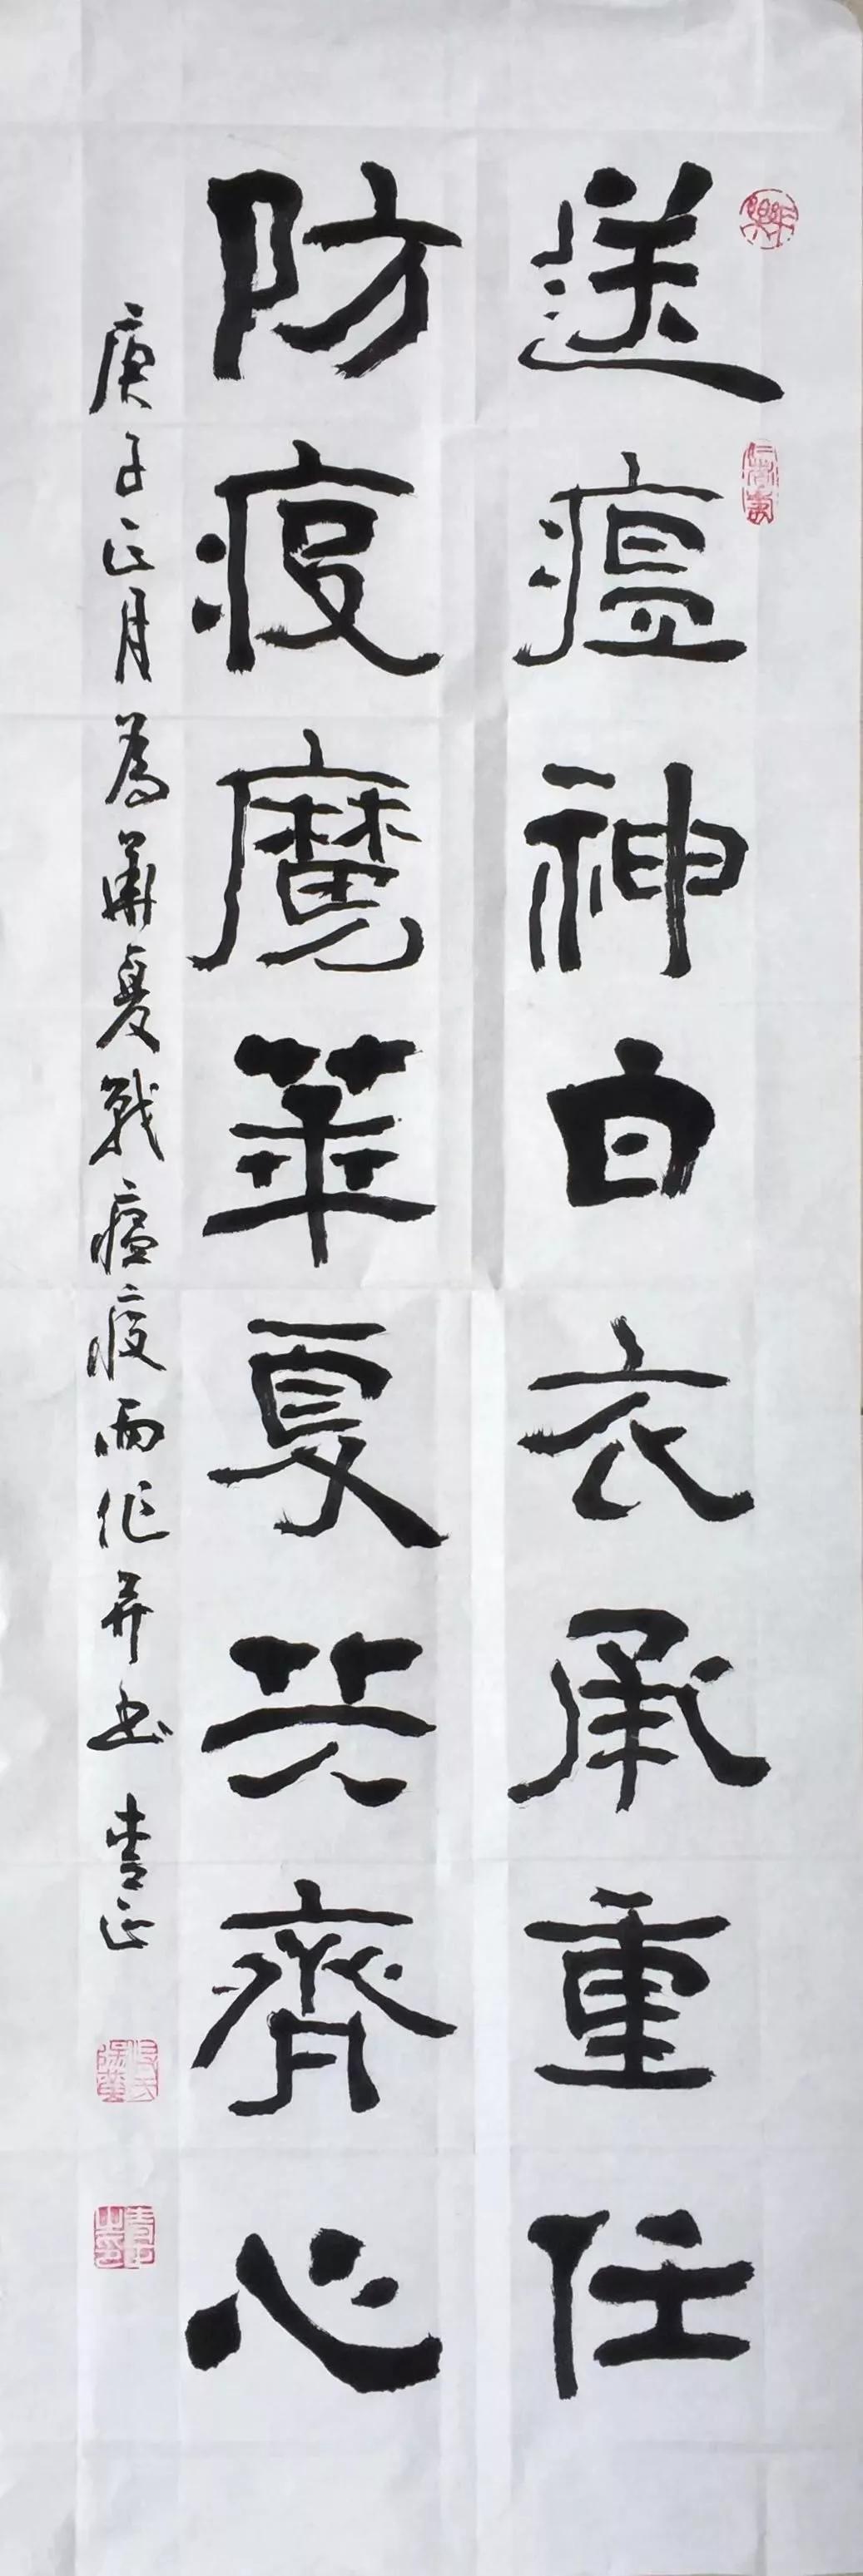 送瘟神白衣承重任
防疫魔華夏共齊心
庚子正月為華夏戰瘟疫而作并书 青正